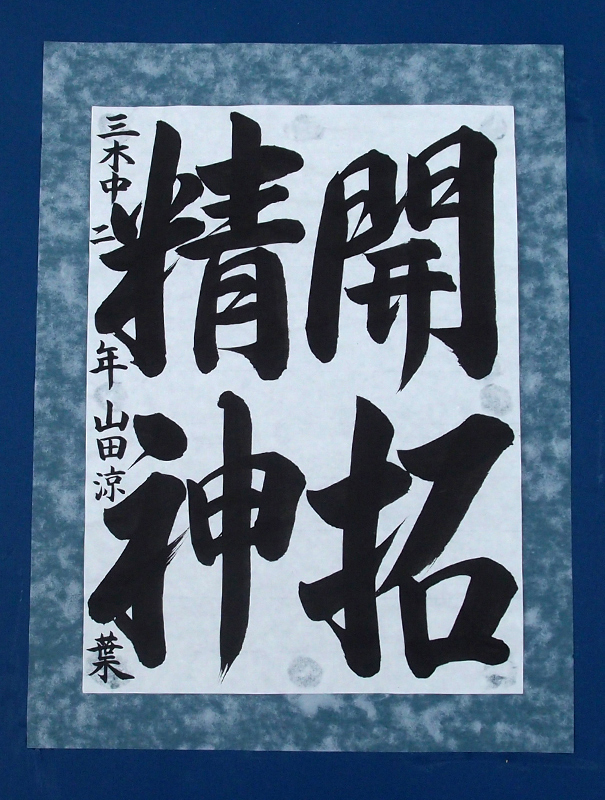 開拓
精神
三木中二年山田涼葉